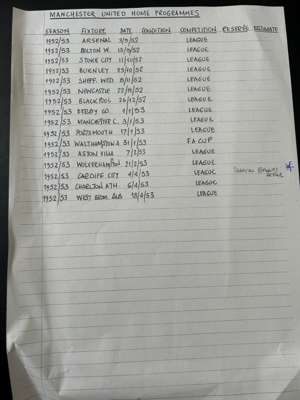 MANCHESTER UNITED HOME PROGRAMMES
SEASON FIXTURE DATE CONDITION COMPETITION RESERVE ESTIMATE
1952/53 ARSENAL 3/9/52 LEAGUE
1952/53 BOLTON W. 13/9/52 LEAGUE
1952/53 STOKE CITY 11/10/52 LEAGUE
1952/53 BURNLEY 25/10/52 LEAGUE
1952/53 SHEFF WED 8/11/52 LEAGUE
1952/53 NEWCASTLE 22/11/52 LEAGUE
1952/53 BLACKPOOL 26/12/52 LEAGUE
1952/53 DERBY CO. 1/1/53 LEAGUE
1952/53 MANCHESTER C. 3/1/53 LEAGUE
1952/53 PORTSMOUTH 17/1/53 LEAGUE
1952/53 WALTHAMSTOW A. 31/1/53 F.A CUP
1952/53 ASTON VILLA 7/2/53 LEAGUE
1952/53 WOLVERHAMPTON 21/2/53 LEAGUE
1952/53 CARDIFF CITY 4/4/53 LEAGUE
1952/53 CHARLTON ATH. 6/4/53 LEAGUE
1952/53 WEST BROM. ALB 18/4/53 LEAGUE